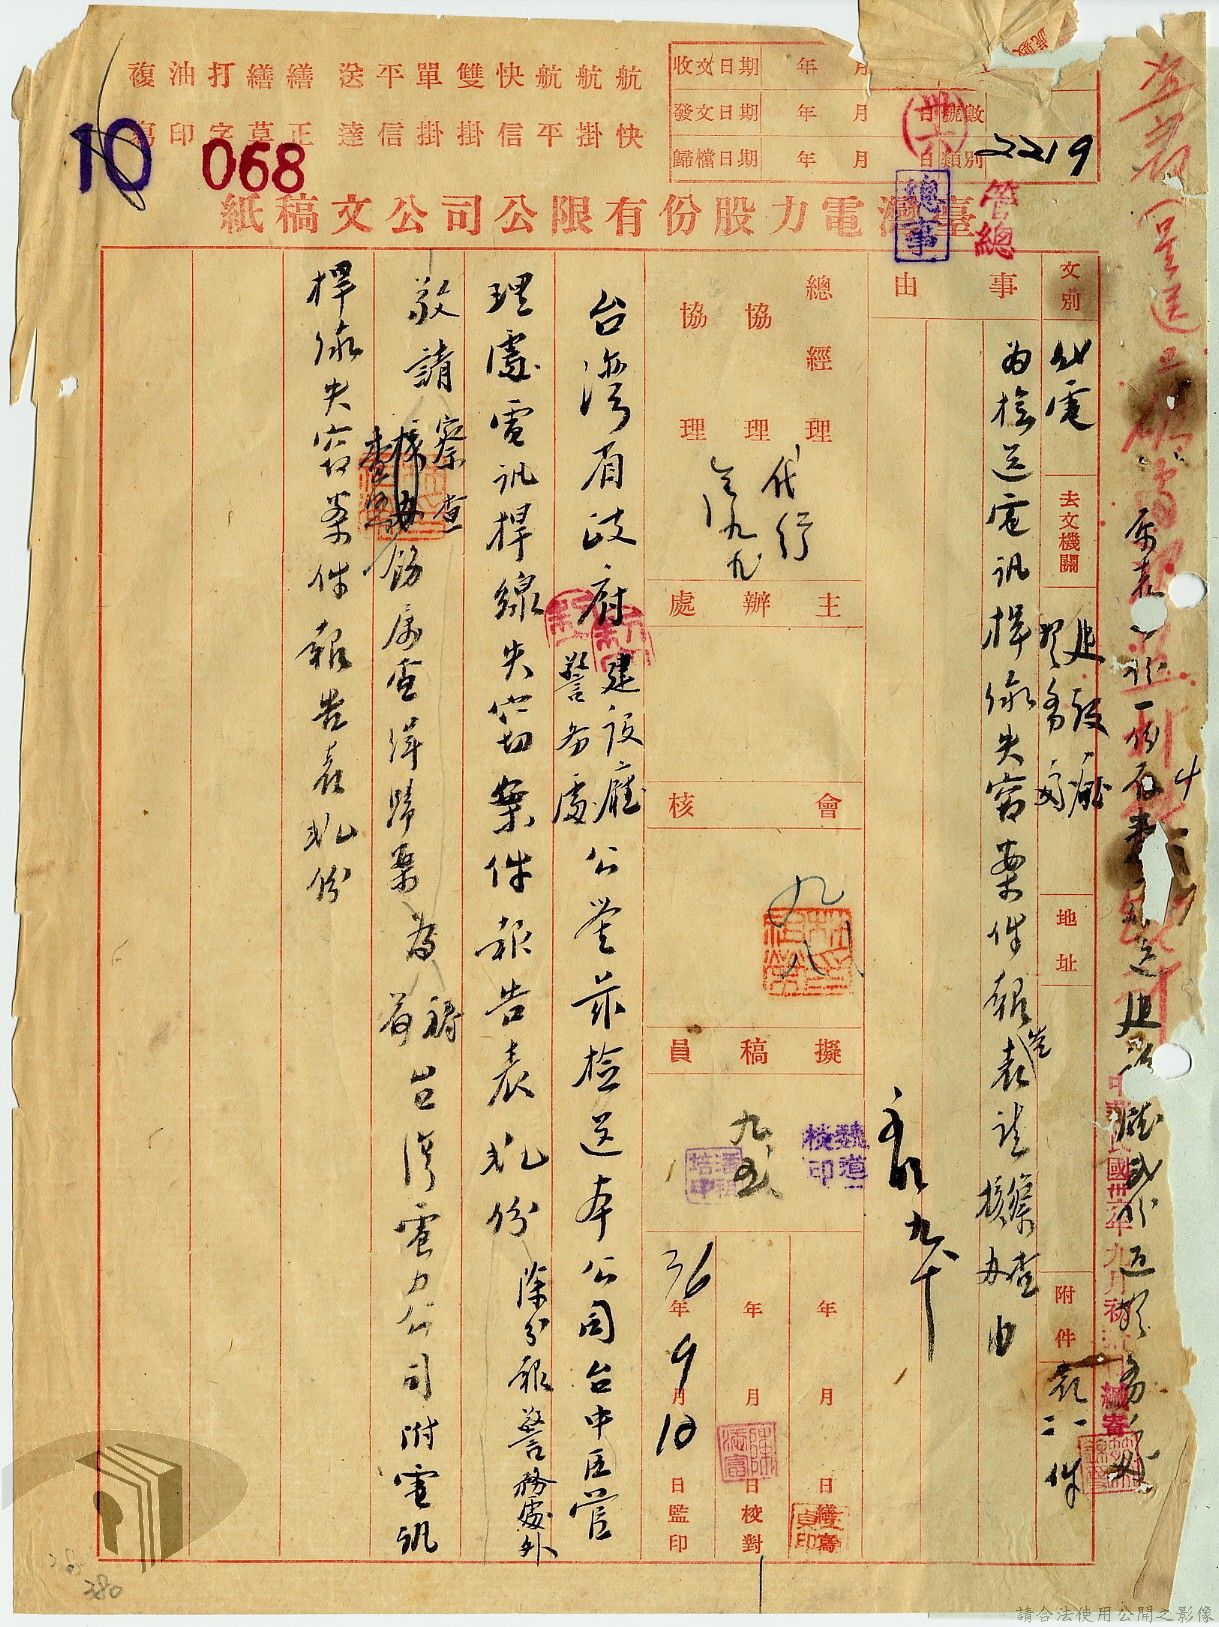 收文日期 年 月
發文日期 年 月 日 號數
歸檔日期 年 月 日 類別
卅六
2219
航航航快雙單平送繕繕打油複
快掛平信掛掛信達正草字印寫
10
068
總事
管總
臺灣電力股份有限公司公文稿紙
文別
代電
去文機關
建設廳
警務處
地址
附件
表一二件
事由
為檢送電訊桿線失竊案件報告表請察查核办由
總經理
協理
協理
代行
主辦處
會核
九八
擬稿員
魏道
校印
九五
年 月 日 繕寫
年 月 日 校對
36年9月10日監印
台灣省政府建設廳
警务處
公鑒茲檢送本公司台中區管
理處電訊桿線失竊案件報告表弍份
除分報警務處外
敬請
察查
核办
飭属查緝歸案為
禱
荷
台灣電力公司附電訊
桿線失竊案件報告表弍份
中華民國卅六年九月
280
請合法使用公開之影像